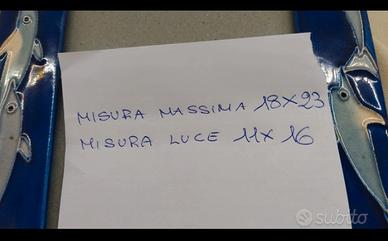 MISURA MASSIMA 18X23
MISURA LUCE 11X16
subito